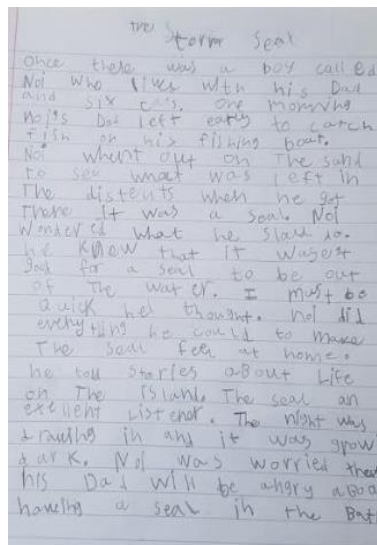 The Storm Seal
Once there was a boy called
Noi who lives with his Dad
and six cats. One morning
noi's Dad left early to catch
fish on his fishing boat.
Noi whent out on The sand
to see what was left in
The distents when he got
There it was a seal. Noi
wondered what he should do.
he knew that it wasent
good for a seal to be out
of The water. I must be
Quick he thought. noi did
everything he could to make
The seal feel at home.
he told Stories about Life
on The island. The seal an
exellent Listener. The night was
drawing in and it was grow
dark. Noi was worried that
his Dad will be angry aboa
haveing a seal in the Bath